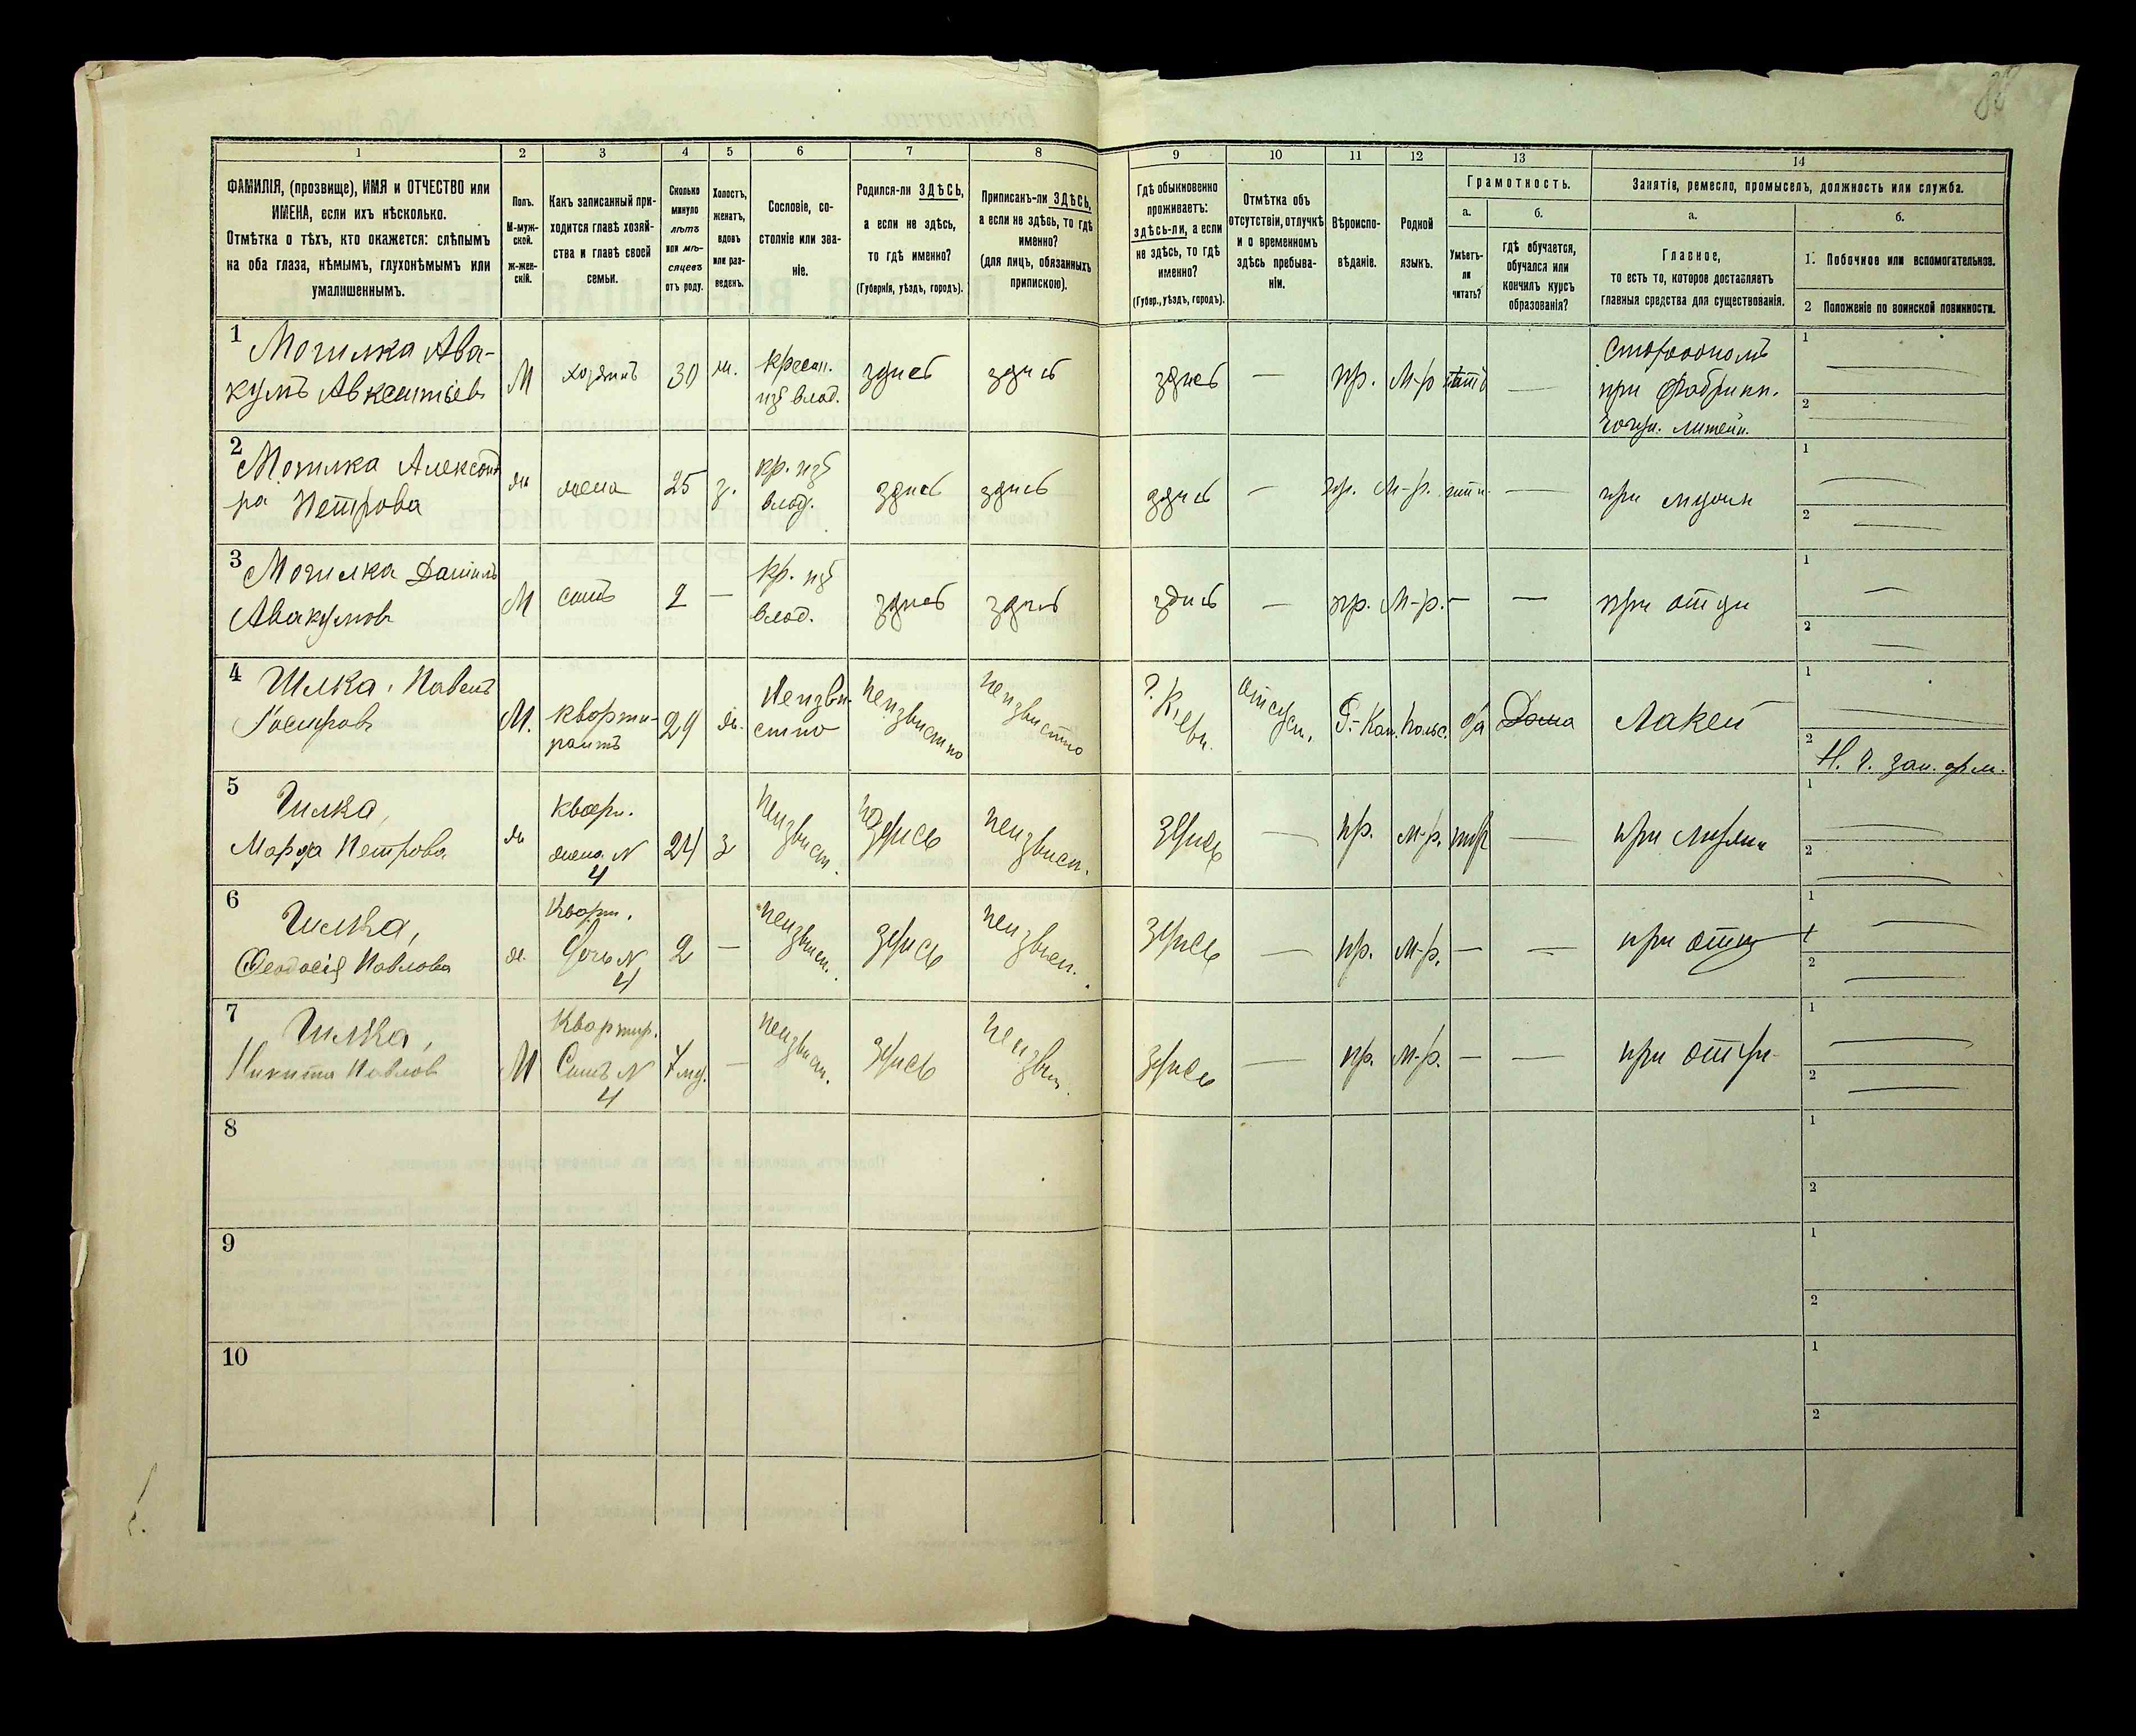 1
ФАМИЛІЯ, (прозвище), ИМЯ и ОТЧЕСТВО или
ИМЕНА, если ихъ нѣсколько.
Отмѣтка о тѣхъ, кто окажется: слѣпымъ
на оба глаза, нѣмымъ, глухонѣмымъ или
умалишеннымъ.
2
Полъ.
М-муж-
ской.
Ж-жен-
скій.
3
Какъ записанный при-
ходится главѣ хозяй-
ства и главѣ своей
семьи.
4
Сколько
минуло
лѣтъ
или мѣ-
сяцевъ
отъ роду.
5
Холостъ,
женатъ,
вдовъ
или раз-
веденъ.
6
Сословіе, со-
стояніе или зва-
ніе.
7
Родился-ли ЗДѢСЬ,
а если не здѣсь,
то гдѣ именно?
(Губернія, уѣздъ, городъ).
8
Приписанъ-ли ЗДѢСЬ,
а если не здѣсь, то гдѣ
именно?
(для лицъ, обязанныхъ
припискою).
9
Гдѣ обыкновенно
проживаетъ:
здѣсь-ли, а если
не здѣсь, то гдѣ
именно?
(Губер., уѣздъ, городъ).
10
Отмѣтка объ
отсутствіи, отлучкѣ
и о временномъ
здѣсь пребыва-
ніи.
11
Вѣроиспо-
вѣданіе.
12
Родной
языкъ.
13
Грамотность.
а.
Умѣетъ-
ли
читать?
б.
гдѣ обучается,
обучался или
кончилъ курсъ
образованія?
14
Занятіе, ремесло, промыселъ, должность или служба.
а.
Главное,
то есть то, которое доставляетъ
главныя средства для существованія.
б.
1. Побочное или вспомогательное.
2 Положеніе по воинской повинности.
1
Могилка Ава-
кумъ Авксентіевъ
М
хозяинъ
30
ж.
крест.
изъ влад.
здѣсь
здѣсь
здѣсь
—
пр.
М-р
—
при фабрикѣ
1
2
2
Могилка Александ
ра Петрова
ж
жена
25
з.
кр. изъ
влад.
здѣсь
здѣсь
здѣсь
—
пр.
М-р.
—
при мужѣ
1
2
3
Могилка Даніилъ
Авакумовъ
М
сынъ
2
—
кр. изъ
влад.
здѣсь
здѣсь
здѣсь
—
пр.
М-р.
—
—
при отцѣ
1
2
4
Павелъ
М.
кварти-
рантъ
29
ж.
Неизвѣ-
стно
неизвѣстно
неизвѣстно
г. Кіевъ.
отсутст.
Р.-Кат.
Польс.
да
Дома
Лакей
1
2
5
Гилка,
Марфа Петрова
ж
кварт.
жена N
4
24
з
неизвѣст.
здѣсь
неизвѣст.
здѣсь
—
пр.
м-р.
—
при мужѣ
1
2
6
Гилка,
Феодосія Павлова
ж.
Кварт.
Дочь N
4
2
—
неизвѣст.
здѣсь
неизвѣст.
здѣсь
—
пр.
м-р.
—
—
при отцѣ
1
2
7
Гилка,
Никита Павловъ
М
Квартир.
Сынъ N
4
7 мѣ.
—
неизвѣст.
здѣсь
неизвѣст.
здѣсь
—
пр.
м-р.
—
—
при отцѣ
1
2
8
1
2
9
1
2
10
1
2